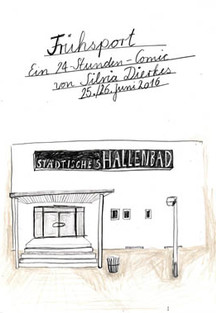 Frühsport
Ein 24-Stunden-Comic
von Silvia Dierkes
25./26. Juni 2016
STÄDTISCHES HALLENBAD